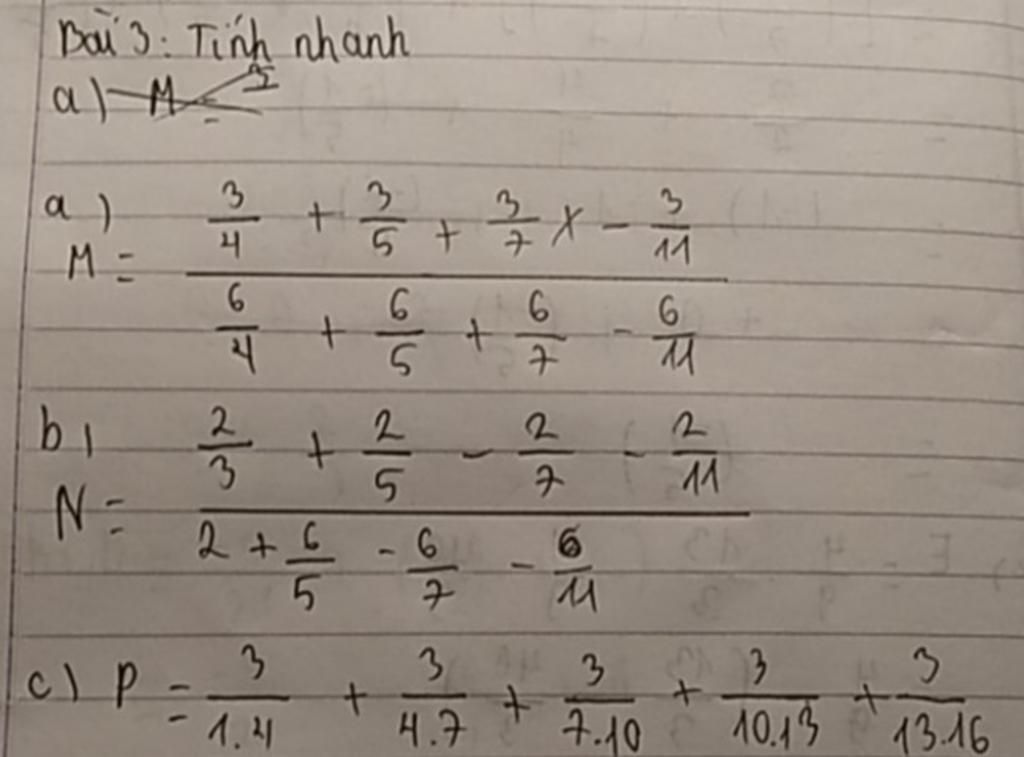 Bài 3: Tính nhanh
a)
a) M = (3/4 + 3/5 + 3/7 - 3/11) / (6/4 + 6/5 + 6/7 - 6/11)
b) N = (2/3 + 2/5 - 2/7 - 2/11) / (2 + 6/5 - 6/7 - 6/11)
c) P = 3/1.4 + 3/4.7 + 3/7.10 + 3/10.13 + 3/13.16